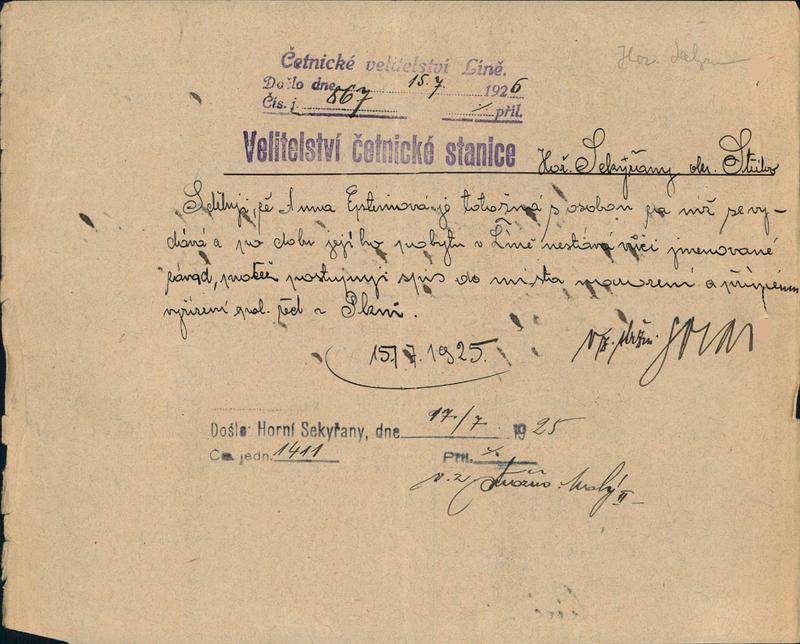 Četnické velitelství Líně.
Došlo dne 15.7. 1926
Čís. j. 867 /. příl.
Velitelství četnické stanice Hoř. Sekyřany okr. Stříbro
Sděluji, že Anna je totožná s osobou za níž se vy-
dává a po dobu jejího pobytu v Líně nestává vůči jmenované
závad, pročež postupuji spis do místa a
vyřízení pol. řed v Plzni.
15/7. 1925.
Došlo Horní Sekyřany, dne 17./7. 1925
Čís. jedn. 1411 Příl. /.
v. z. II